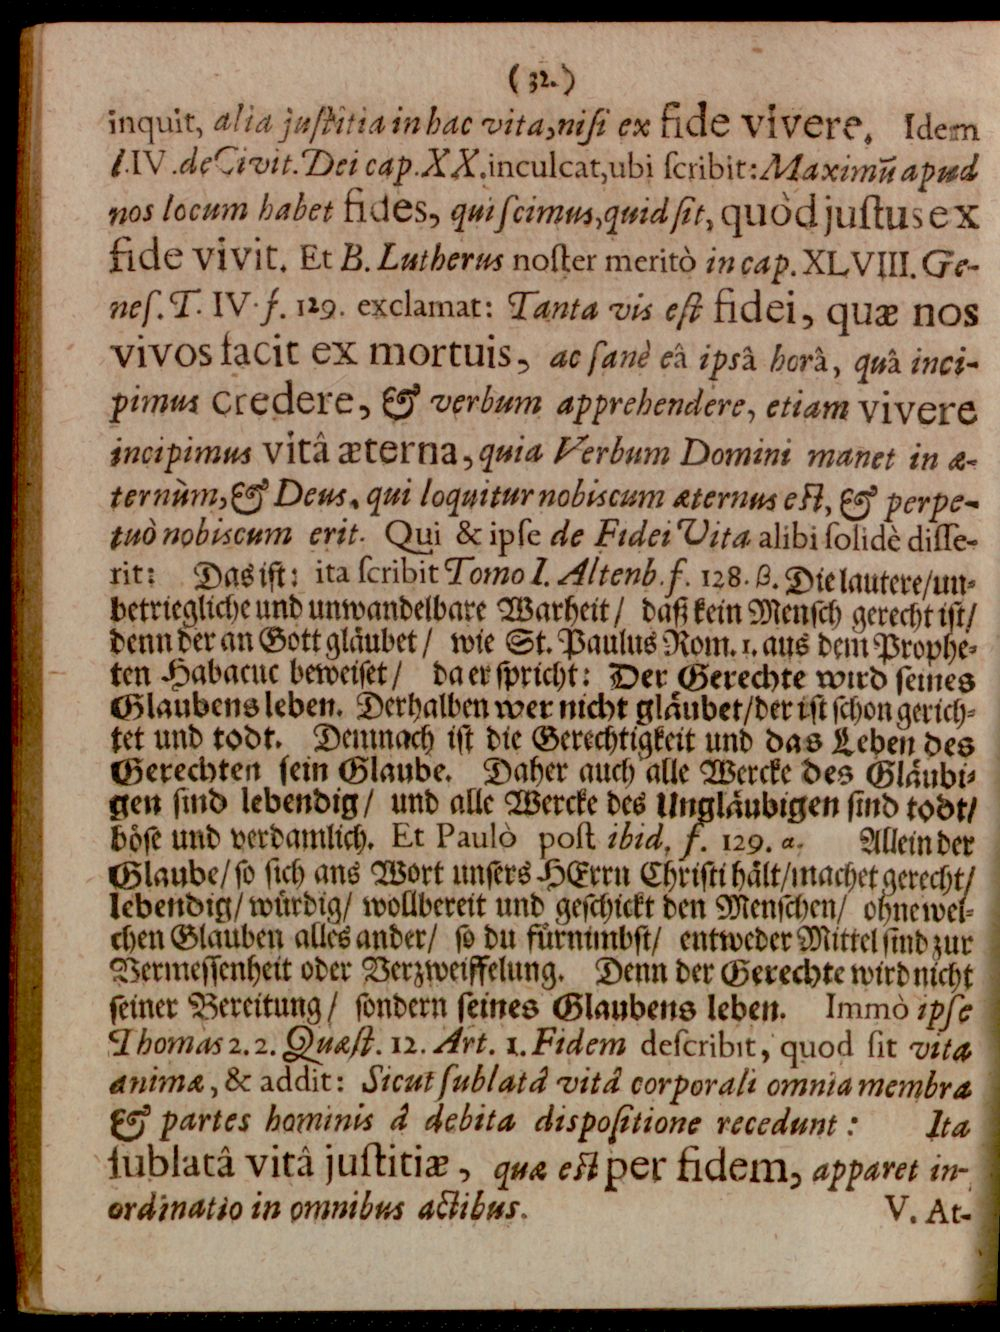 (32.)
inquit, alia juſtitia in hac vita, niſi ex fide vivere. Idem
l.IV. de Civit. Dei cap. XX. inculcat, ubi ſcribit: Maximũ apud
nos locum habet fides, qui ſcimus, quid ſit, quòd juſtus ex
fide vivit. Et B. Lutherus noſter meritò in cap. XLVIII. Ge-
neſ. T. IV. f. 129. exclamat: Tanta vis eſt fidei, quæ nos
vivos facit ex mortuis, ac ſanè eâ ipsâ horâ, quâ inci-
pimus credere, & verbum apprehendere, etiam vivere
incipimus vitâ æterna, quia Verbum Domini manet in æ-
ternùm, & Deus, qui loquitur nobiscum æternus eſt, & perpe-
tuò nobiscum erit. Qui & ipſe de Fidei Vita alibi ſolidè diſſe-
rit: Das iſt: ita ſcribit Tomo I. Altenb. f. 128. β. Die lautere/ un-
betriegliche und unwandelbare Warheit/ daß kein Menſch gerecht iſt/
denn der an Gott gläubet/ wie St. Paulus Rom. 1. aus dem Prophe-
ten Habacuc beweiſet/ da er ſpricht: Der Gerechte wird ſeines
Glaubens leben. Derhalben wer nicht gläubet/ der iſt ſchon gerich-
tet und todt. Demnach iſt die Gerechtigkeit und das Leben des
Gerechten ſein Glaube. Daher auch alle Wercke des Gläubi-
gen ſind lebendig/ und alle Wercke des Ungläubigen ſind todt/
böſe und verdamlich. Et Paulò poſt ibid. f. 129. a. Allein der
Glaube/ ſo ſich ans Wort unſers HErrn Chriſti hält/ machet gerecht/
lebendig/ würdig/ wollbereit und geſchickt den Menſchen/ ohne wel-
chen Glauben alles ander/ ſo du fürnimbſt/ entweder Mittel ſind zur
Vermeſſenheit oder Verzweiffelung. Denn der Gerechte wird nicht
ſeiner Bereitung/ ſondern ſeines Glaubens leben. Immò ipſe
Thomas 2. 2. Quæſt. 12. Art. 1. Fidem deſcribit, quod ſit vita
animæ, & addit: Sicut ſublatâ vitâ corporali omnia membra
& partes hominis â debita diſpoſitione recedunt: Ita
ſublatâ vitâ juſtitiæ, quæ eſt per fidem, apparet in-
ordinatio in omnibus actibus. V. At-